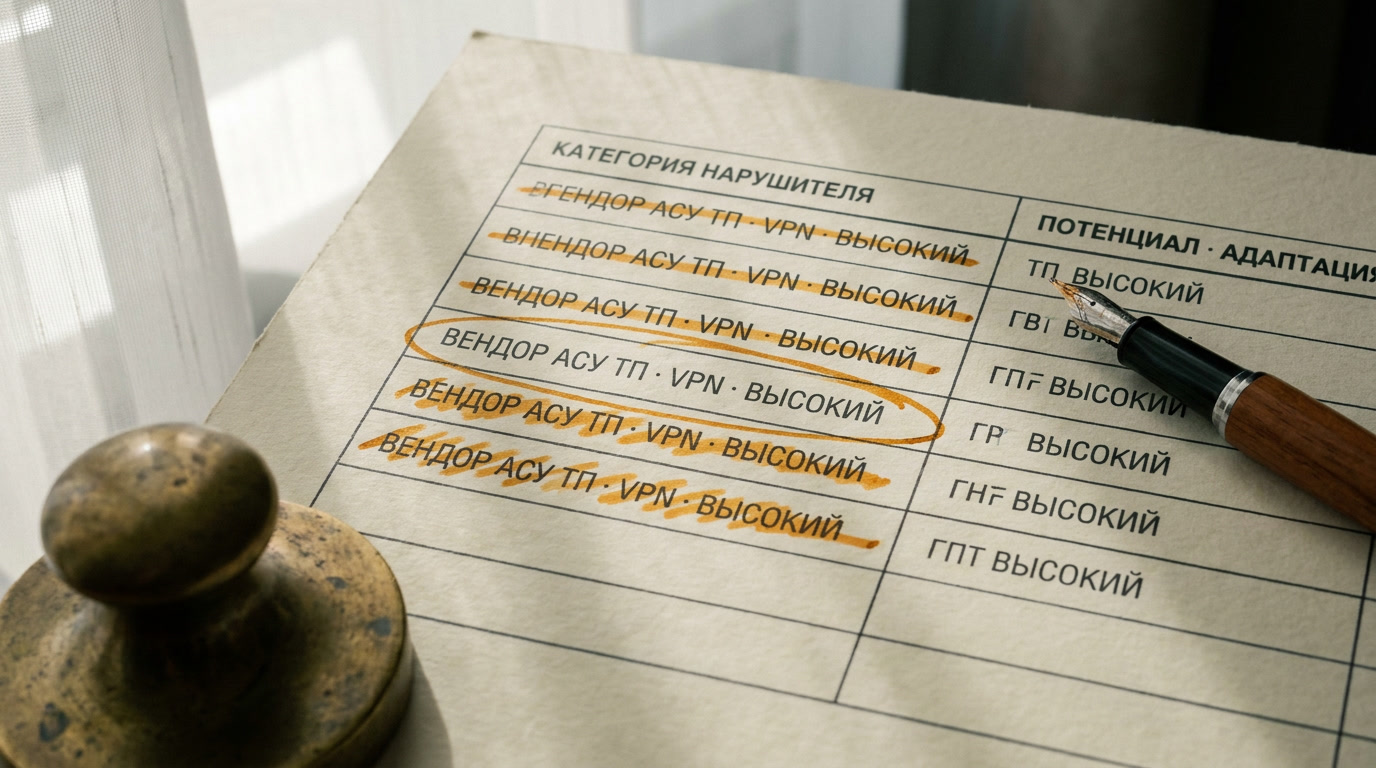 КАТЕГОРИЯ НАРУШИТЕЛЯ
ПОТЕНЦИАЛ · АДАПТАЦИЯ
ВГЕНДОР АСУ ТП · VPN · ВЫСОКИЙ
ТП ВЫСОКИЙ
ВНЕНДОР АСУ ТП · VPN · ВЫСОКИЙ
ВЕНДОР АСУ ТП · VPN · ВЫСОКИЙ
ВЫСОКИЙ
ВЕНДОР АСУ ТП · VPN · ВЫСОКИЙ
ВЫСОКИЙ
ВЕНДОР АСУ ТП · VPN · ВЫСОКИЙ
ВЫСОКИЙ
ВЕНДОР АСУ ТП · VPN · ВЫСОКИЙ
ГПТ ВЫСОКИЙ